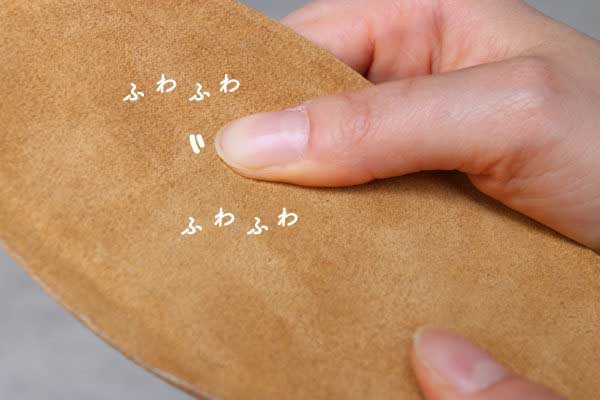 ふわふわ
ふわふわ